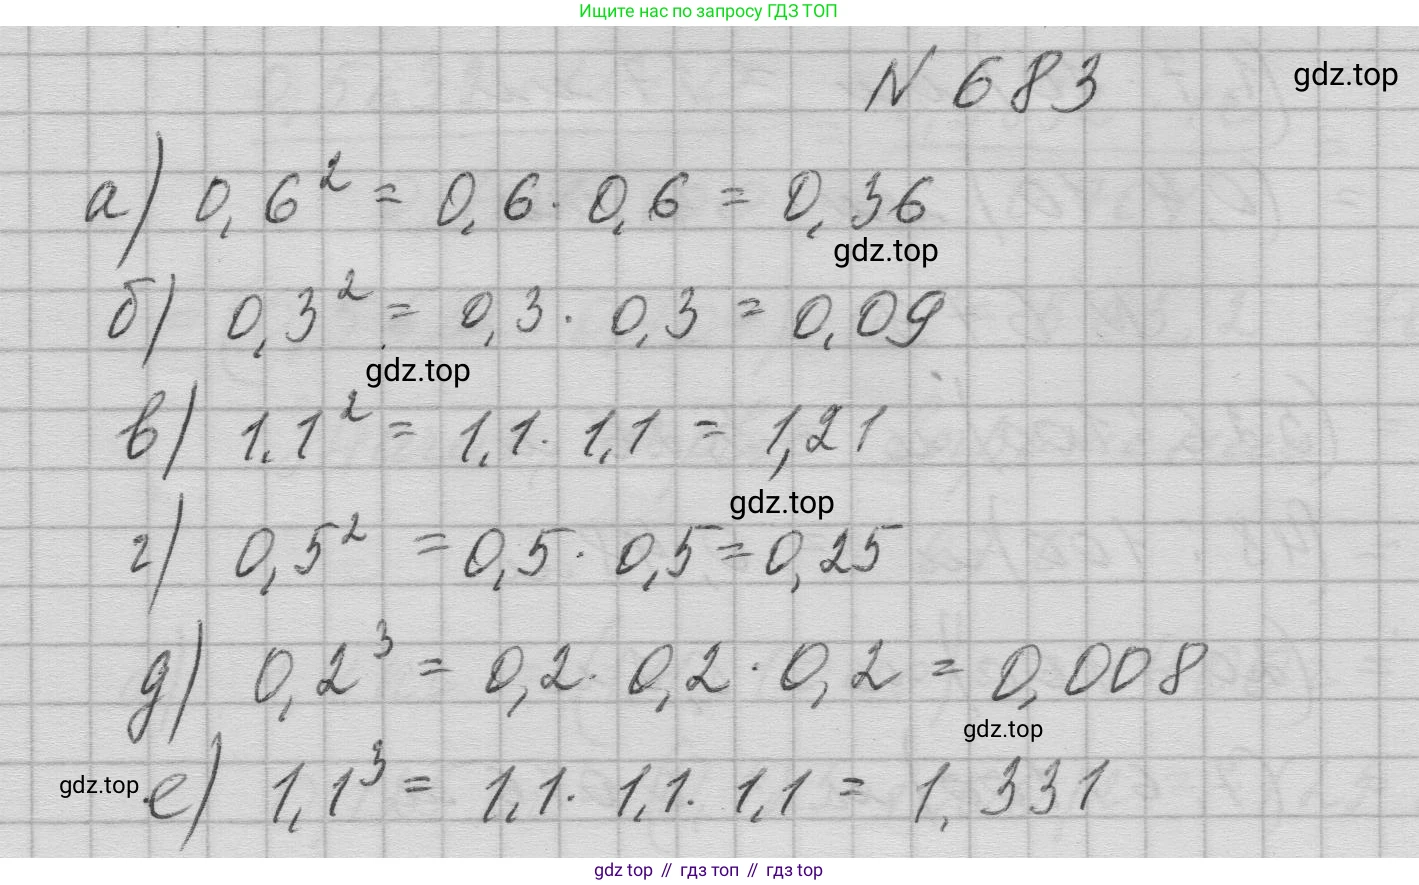 Ищите нас по запросу ГДЗ ТОП
N 683
gdz.top
а) 0,6² = 0,6 · 0,6 = 0,36
gdz.top
б) 0,3² = 0,3 · 0,3 = 0,09
gdz.top
в) 1,1² = 1,1 · 1,1 = 1,21
gdz.top
г) 0,5² = 0,5 · 0,5 = 0,25
д) 0,2³ = 0,2 · 0,2 · 0,2 = 0,008
gdz.top
gdz.top
е) 1,1³ = 1,1 · 1,1 · 1,1 = 1,331
gdz top // гдз топ // gdz top